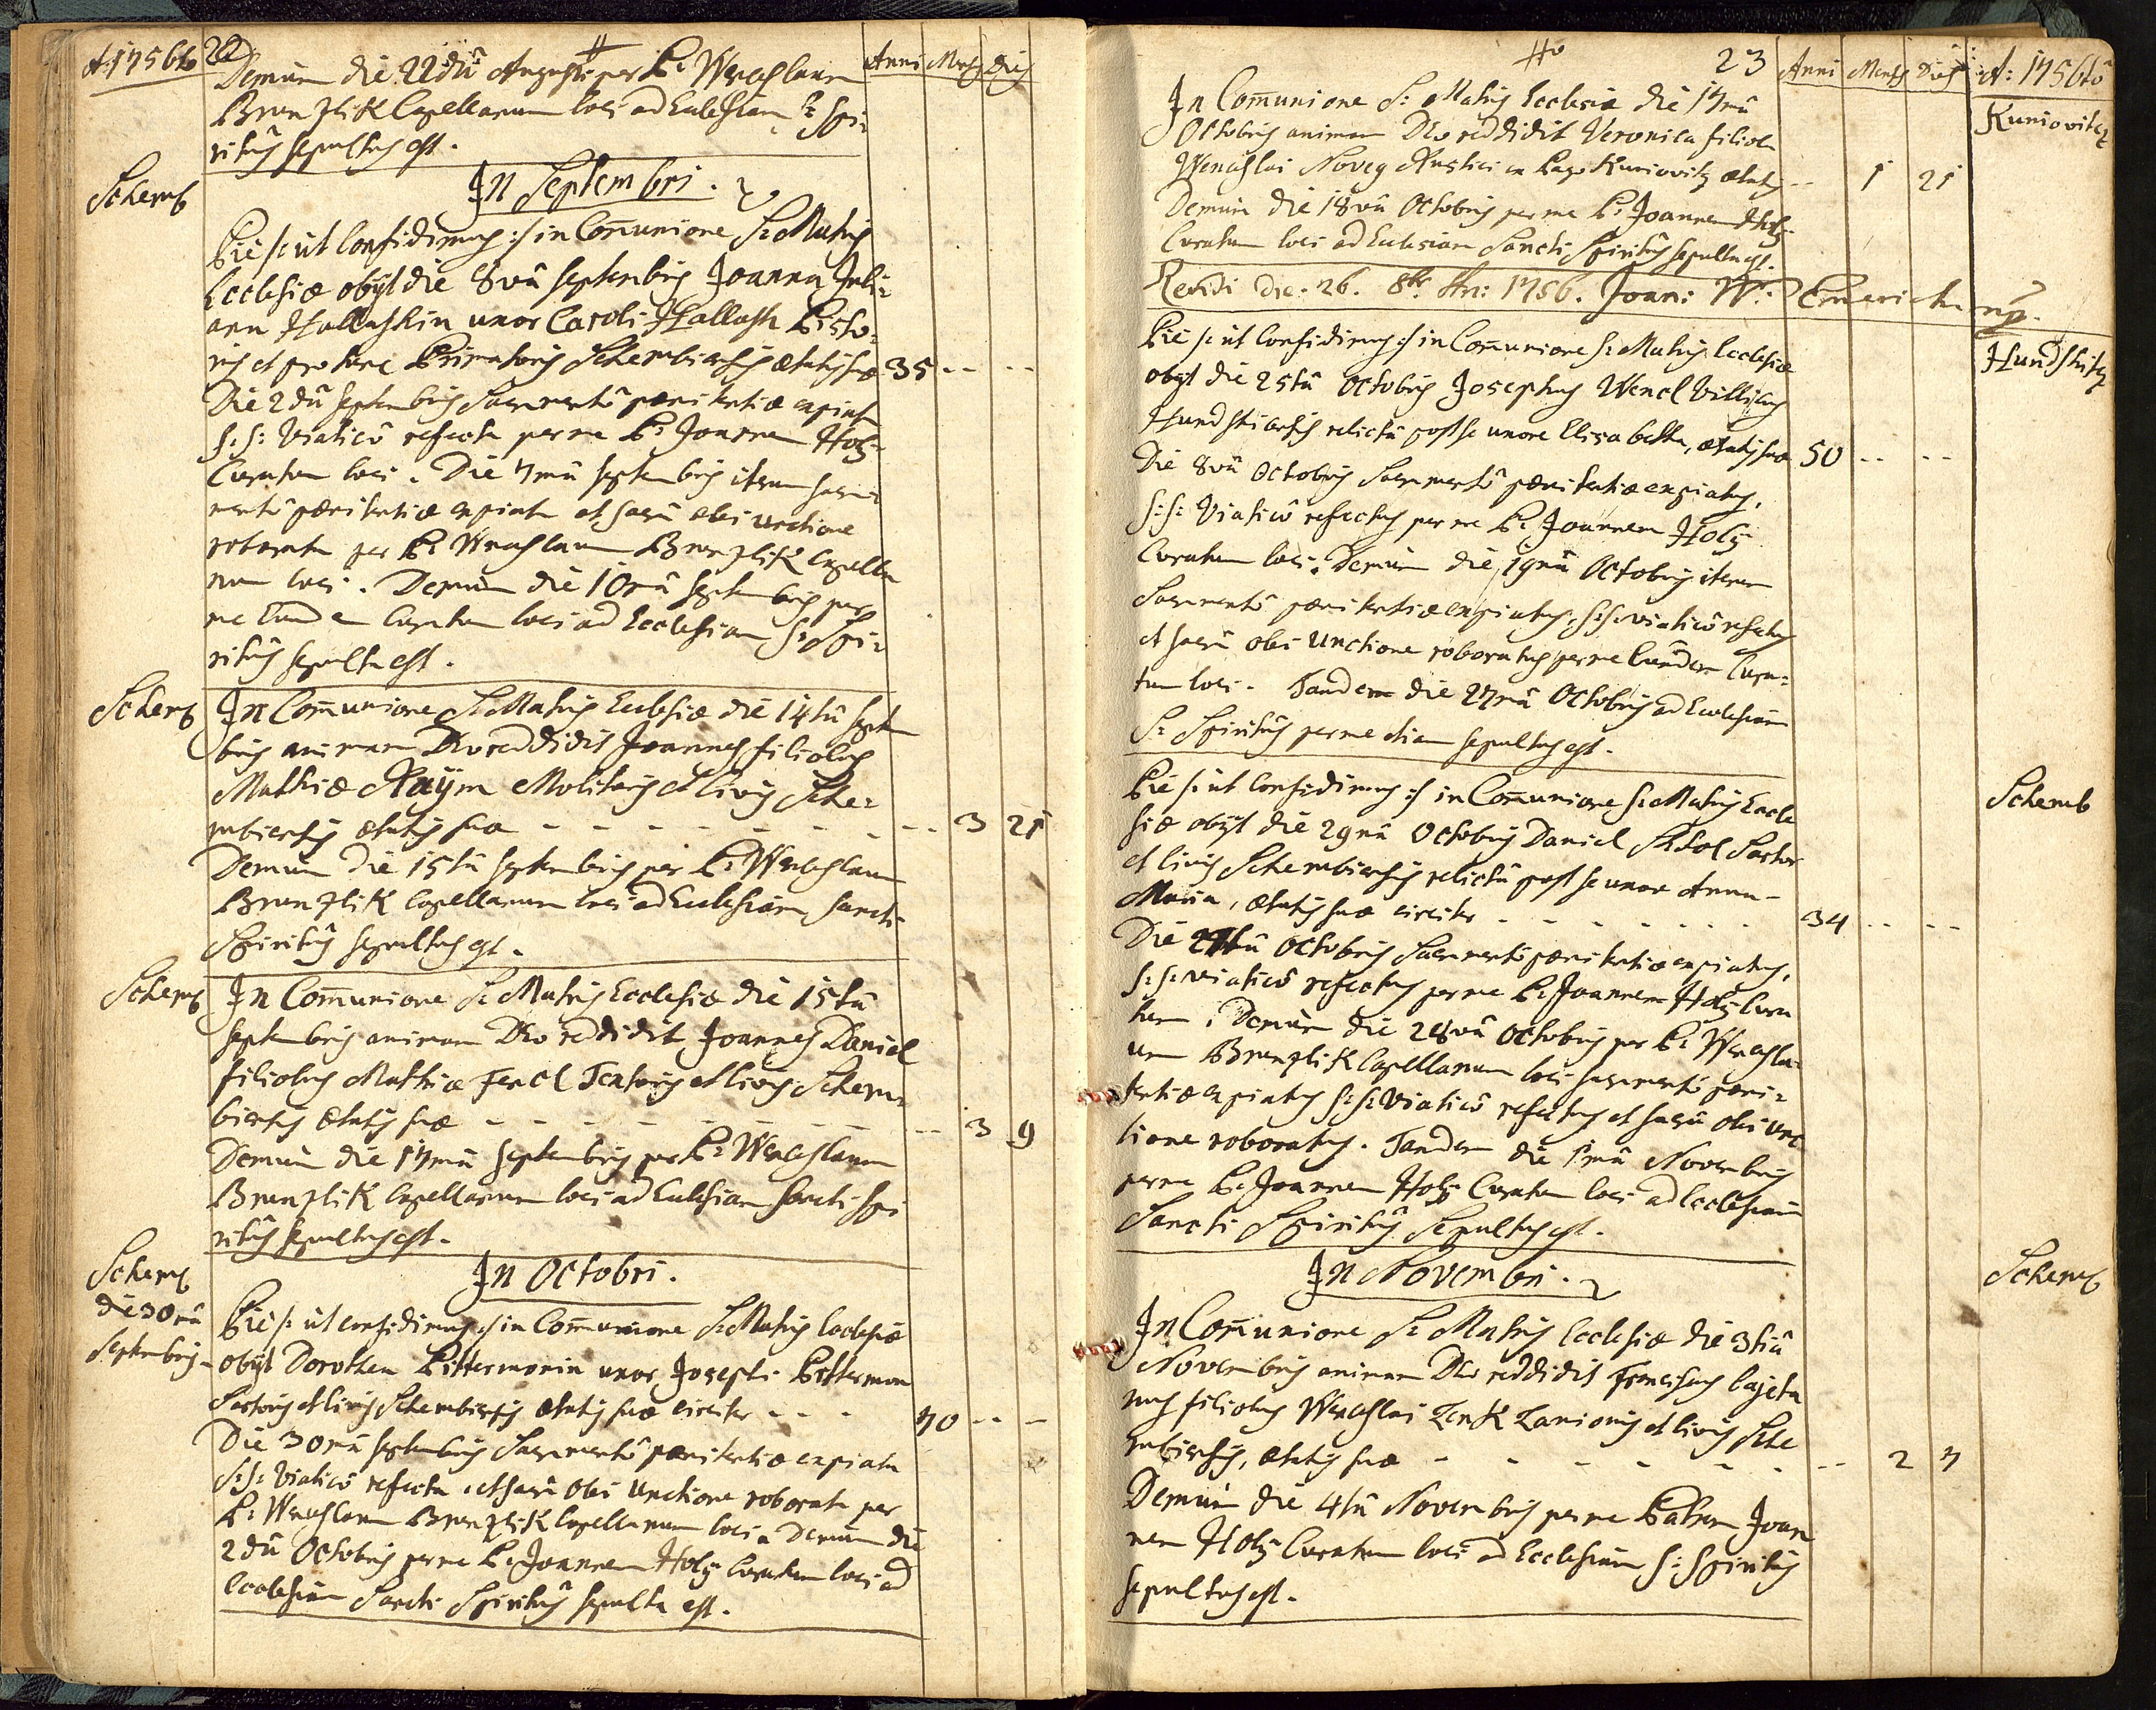 A: 1756to 22 Anni Mens Dies
Demum die 22dâ Augusti per P: Wenceslaum
Brunzlik Capellanum loci ad Ecclesiam S: Spi=
ritûs sepultus est.
In Septembri.
Schemb
Pie /: ut confidimus :/ in Com̄unione S: Matris
Ecclesiæ obÿt die 8vâ Septembris Joanna Juli=
ana Hallashin uxor Caroli Hallash Pisto=
ris et pro tunc Primatoris Schembiensis ætatis suæ 35 -- --
Die 2dâ Septembris Sacramentô pœnitentiæ expiata
S: S: Viaticô refecta per me P: Joannem Holÿ
Curatum loci. Die 7mâ Septembris iterum Sacra=
mentô pœnitentiæ expiata et sacrâ olei unctione
roborata per P: Wenceslaum Brunzlik Capella
num loci. Demum die 10mâ Septembris per
me Eundem Curatum loci ad Ecclesiam S: Spi=
ritûs sepulta est.
Schemb
In Com̄unione S: Matris Ecclesiæ die 14tâ Septem
bris animam Deo reddidit Joannes filiolus
Mathiæ Raÿm Molitoris et Civis Sche=
mbiensis ætatis suæ - - - - - - - -- 3 21
Demum die 15tâ Septembris per P: Wenceslaum
Brunzlik Capellanum loci ad Ecclesiam Sancti
Spiritûs sepultus est.
Schemb
In Com̄unione S: Matris Ecclesiæ die 15tâ
Septembris animam Deo reddidit Joannes Daniel
filiolus Mathiæ Fencl Textoris et Civis Schem=
biensis ætatis suæ - - - - - - - - -- 3 9
Demum die 17mâ Septembris per P: Wenceslaum
Brunzlik Capellanum loci ad Ecclesiam Sancti Spi
ritûs sepultus est.
In Octobri.
Schemb
die 30mâ
Septembris
Pie /: ut confidimus :/ in Com̄unione S: Matris Ecclesiæ
obÿt Dorothea Pittermonin uxor Josephi Pittermon
Sartoris et Civis Schembiensis ætatis suæ circiter - - - 70 -- --
Die 30mâ Septembris Sacramentô pœnitentiæ expiata
S: S: Viaticô refecta et sacrâ Olei Unctione roborata per
P: Wenceslaum Brunzlik Capellanum loci. Demum die
2dâ Octobris per me P: Joannem Holÿ Curatum loci ad
Ecclesiam Sancti Spiritûs sepulta est.
23 Anni Mens Dies A: 1756tô
Kuniovitz
In Com̄unione S: Matris Ecclesiæ die 17mâ
Octobris animam Deo reddidit Veronica filiola
Wenceslai Noveg Rustici ex Pago Kuniovitz ætatis -- 1 21
Demum die 18vâ Octobris per me P: Joannem Holÿ
Curatum loci ad Ecclesiam Sancti Spiritûs sepulta est.
Revidi die 26. 8br. Ann: 1756. Joan: W: Emerich mp.
Hundshitz
Pie /: ut confidimus :/ in Com̄unione S: Matris Ecclesiæ
obÿt die 25tâ Octobris Josephus Wencl Villicus
Hundshicensis relictâ post se uxore Elisabetha, ætatis suæ 50 -- --
Die 8vâ Octobris Sacramentô pœnitentiæ expiatus,
S: S: Viaticô refectus per me P: Joannem Holÿ
Curatum loci. Demum die 19nâ Octobris iterum
Sacramentô pœnitentiæ expiatus, S: S: viaticô refectus
et sacrâ olei Unctione roboratus per me Eundem Cura=
tum loci. Tandem die 27mâ Octobris ad Ecclesiam
S: Spiritûs per me etiam sepultus est.
Schemb
Pie /: ut confidimus :/ in Com̄unione S: Matris Eccle
siæ obÿt die 29nâ Octobris Daniel Sartor
et Civis Schembiensis relictâ post se uxore Anna-
Maria, ætatis suæ circiter - - - - - - 34 -- --
Die Octobris Sacramentô pœnitentiæ expiatus,
S: S: viaticô refectus per me P: Joannem Holÿ Cura
tum. Demum die 28vâ Octobris per P: Wencesla=
um Brunzlik Capellanum loci sacramentô pœni=
tentiæ expiatus S: S: Viaticô refectus et sacrâ olei unc
tione roboratus. Tandem die 1mâ Novembris
per me P: Joannem Holÿ Curatum loci ad Ecclesiam
Sancti Spiritûs Sepultus est.
In Novembri.
Schemb
In Com̄unione S: Matris Ecclesiæ die 3tiâ
Novembris animam Deo reddidit Franciscus Cajeta
nus filiolus Wenceslai Zenk Lanionis et Civis Sche
mbiensis, ætatis suæ - - - - - - -- 2 7
Demum die 4tâ Novembris per me Patrem Joan
nem Holÿ Curatum loci ad Ecclesiam S: Spiritûs
sepultus est.